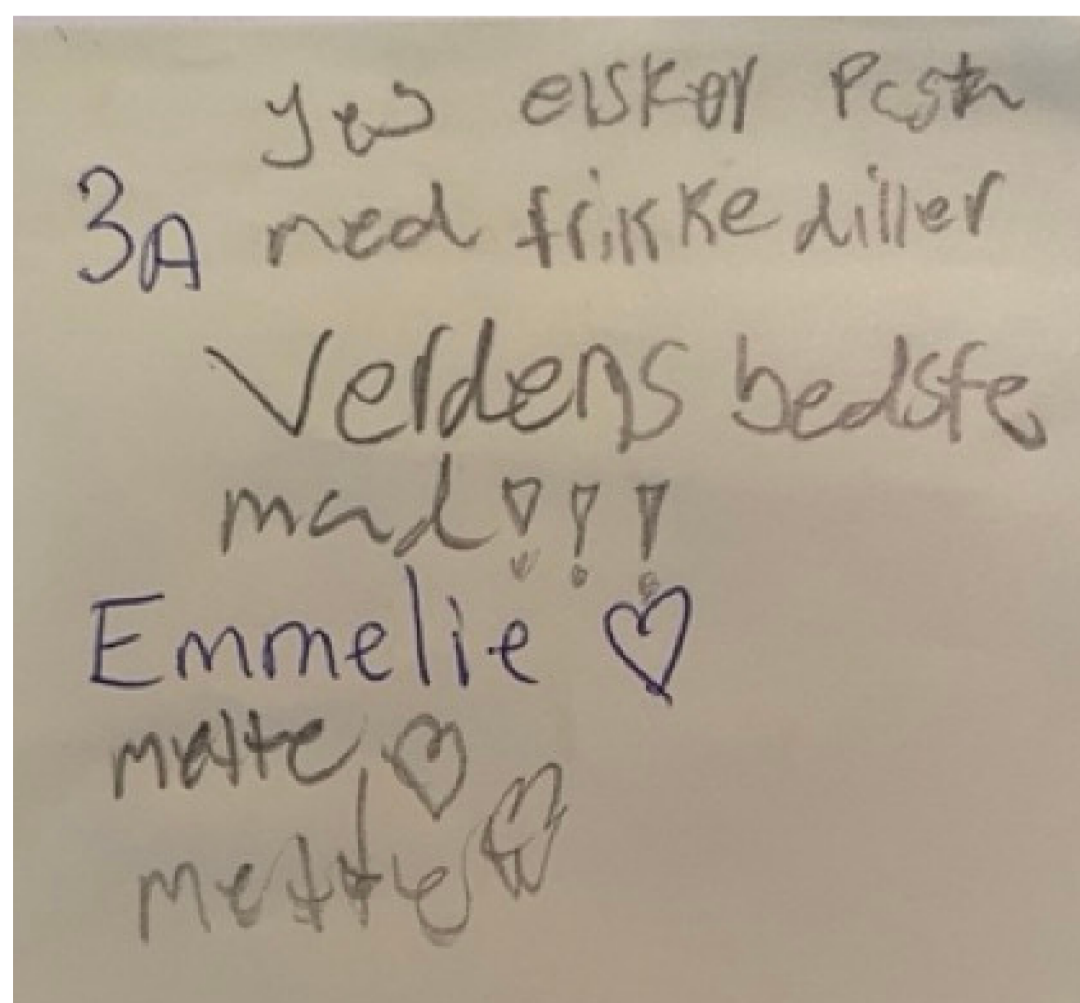 yes elsker Pasta
3A med frikkediller
Verdens bedste
mad!!!
Emmelie ♡
malte ♡
mette ♡